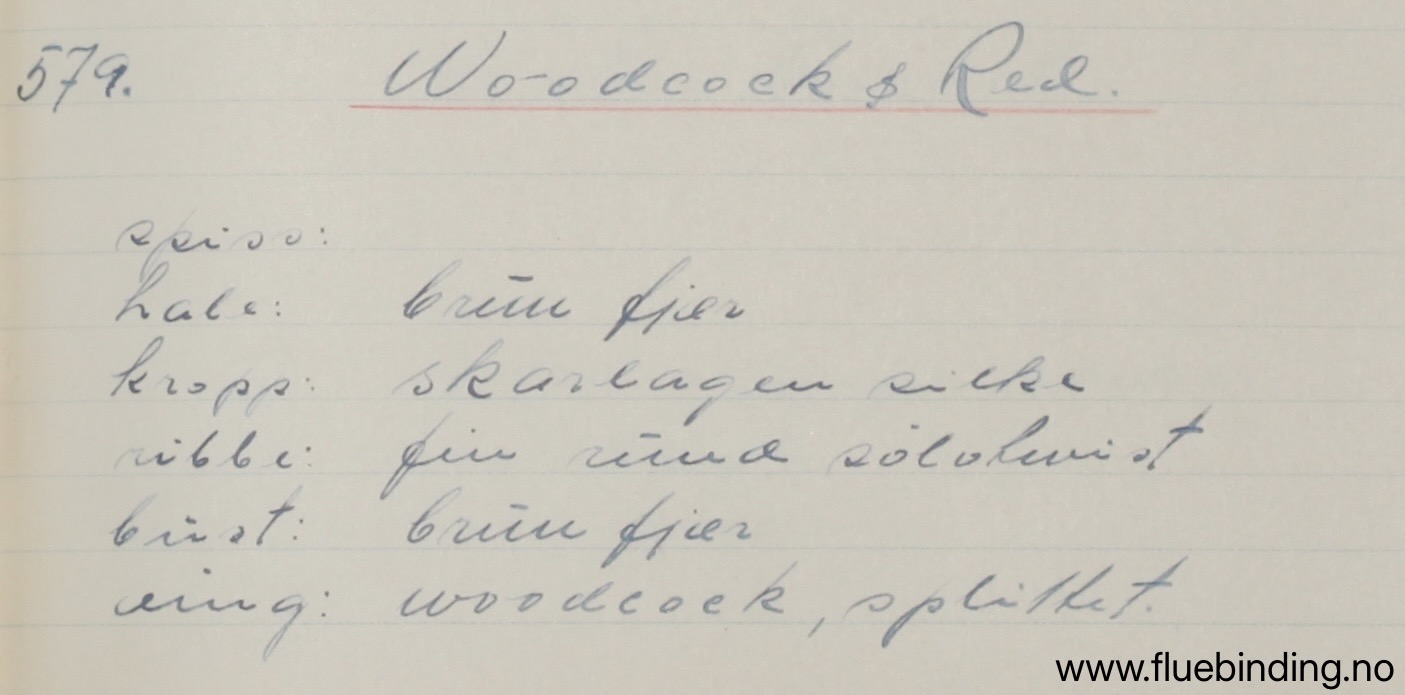 579. Woodcock & Red.
spiss:
hale: brun fjær
kropp: skarlagen silke
ribbe: fin rund sölvtwist
bust: brun fjær
ving: woodcock, splittet.
www.fluebinding.no